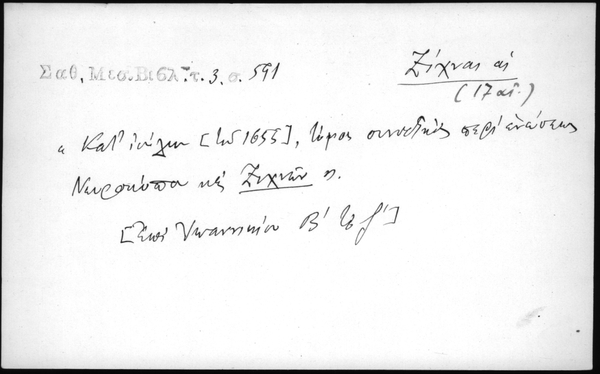 Σαθ. Μεσ. Βιβλ. τ. 3. σ. 591
Ζίχναι αἱ
(17 αἰ.)
« Κατ' ἰούλιον [τοῦ 1655], τόμος συνοδικὸς περὶ ἑνώσεως
Νευροκόπου καὶ Ζιχνῶν ».
[Ἐπὶ Ἰωαννικίου Β' τὸ γ']